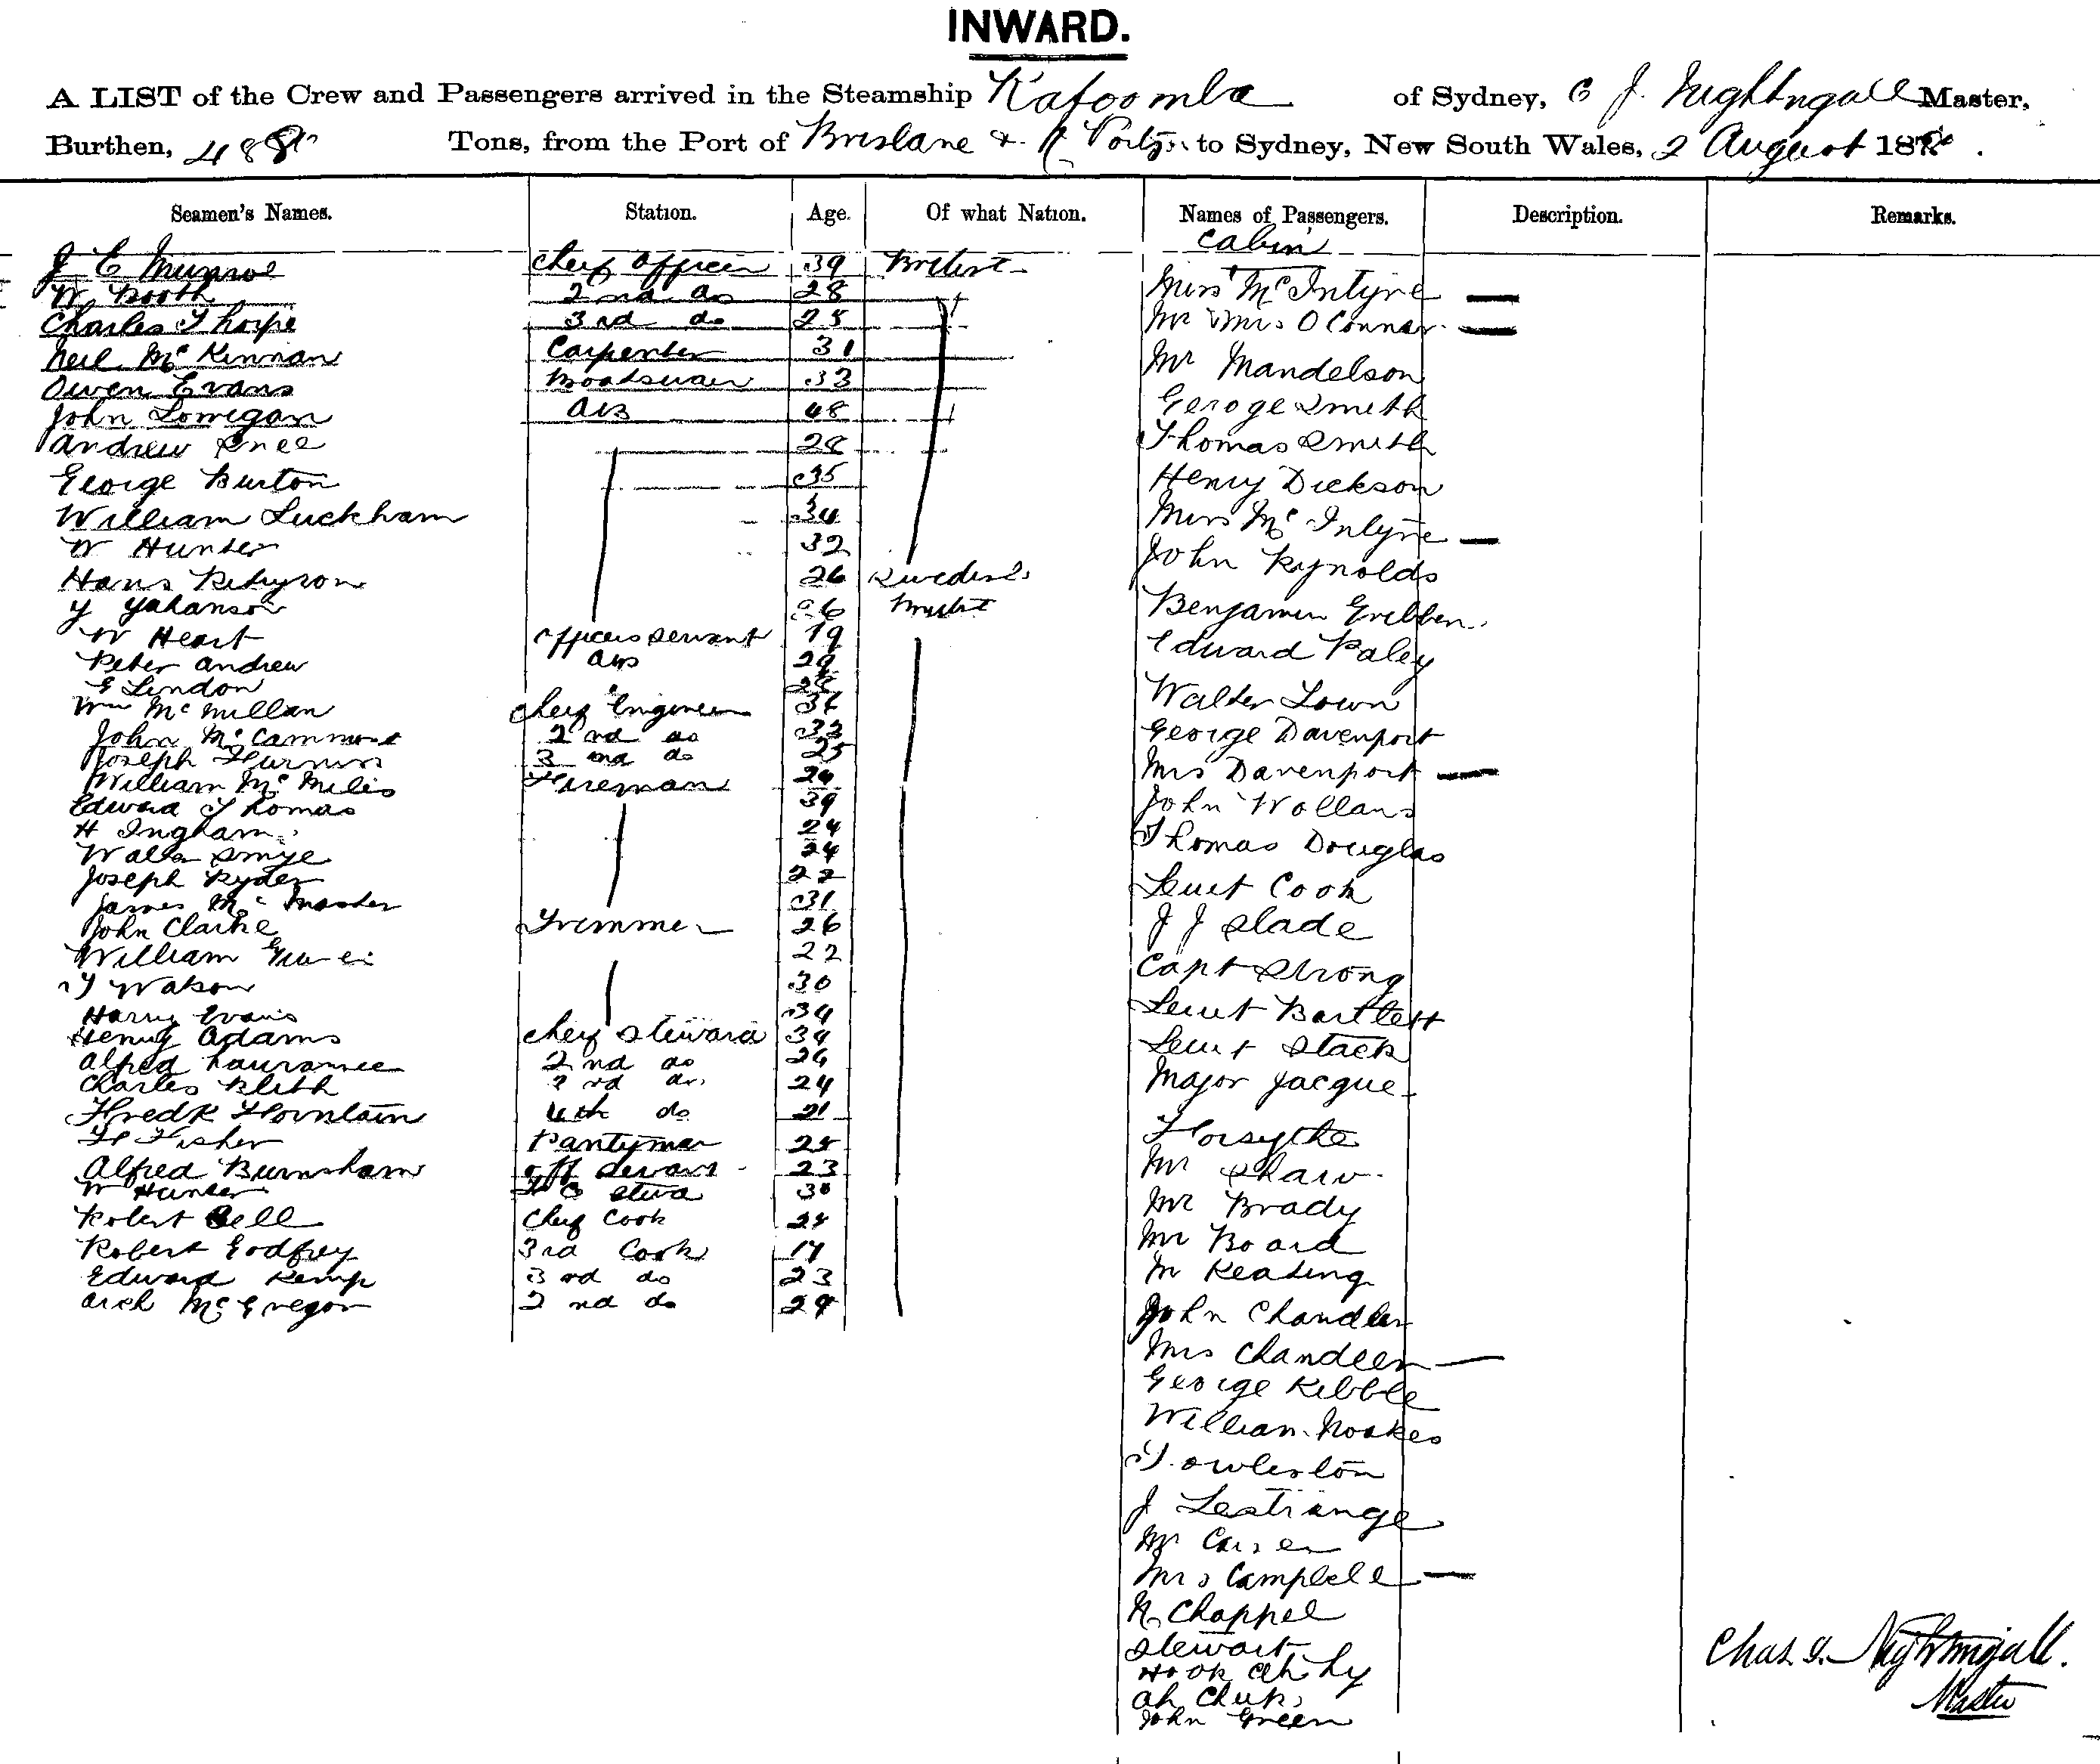 INWARD.
A LIST of the Crew and Passengers arrived in the Steamship Katoomba of Sydney, C J. Nightingall Master,
Burthen, 488 Tons, from the Port of Brisbane & Ports to Sydney, New South Wales, 2 August 18
Seamen's Names. Station. Age. Of what Nation. Names of Passengers. Description. Remarks.
Cabin
J C Munroe Chief Officer 39 British Miss McIntyre
W Booth 2nd do 28 Mr & Mrs O Connor
Charles Thorpe 3rd do 25
Neil McKinnan Carpenter 31 Mr Mandelson
Owen Evans Boatswain 33
John Lonigan AB 48 Geroge Smith
Andrew Knee 28 Thomas Smith
George Burton 35 Henry Dickson
William Luckham 34 Miss McIntyre
W Hunter 32 John Rynolds
Hans 26 Swedish
J Johanson 26 British Benjamin Gribben
W Heart Officers Servant 19 Edward Paley
Peter Andrew AB 29
E Lindon 28 Walter Lown
Wm McMillan Chief Engineer 36
John McCammont 2nd do 33 George Davenport
Joseph Furniss 3 nd do 25
William McMilis Fireman 24 Mrs Davenport
Edward Thomas 39 John Wollans
H Ingham 24 Thomas Douglas
Walter Smye 24
Joseph Ryder 22 Leut Cook
James McMaster 31
John Clarke Trimmer 26 J J Slade
William 22 Capt Strong
T Watson 30
Harry Evans 34 Leut Bartlett
Henry Adams Chief Steward 34 Leut Stack
Alfred Laurance 2nd do 24
Charles Blith 3rd do 24 Major Jacque
Fredk Fountain 4th do 21 Forsythe
Fisher Pantyman 25
Alfred Burnsham off Servant 23 Mr Shaw
W Hunter Stwd 30 Mr Brady
Robert Bell Chief Cook 28
Robert Godfrey 3rd Cook 17 Mr Board
Edward Kemp 3rd do 23 M Keating
Arch McGregor 2nd do 29 John Chandler
Mrs Chandler
George Kibble
William Noakes
T. Owleston
J Lestrange
Mr
Mrs Campbell
N Chappel
Stewart
Hook Ah hy
Ah Chuk
John Green
Chas. J. Nightingall.
Master